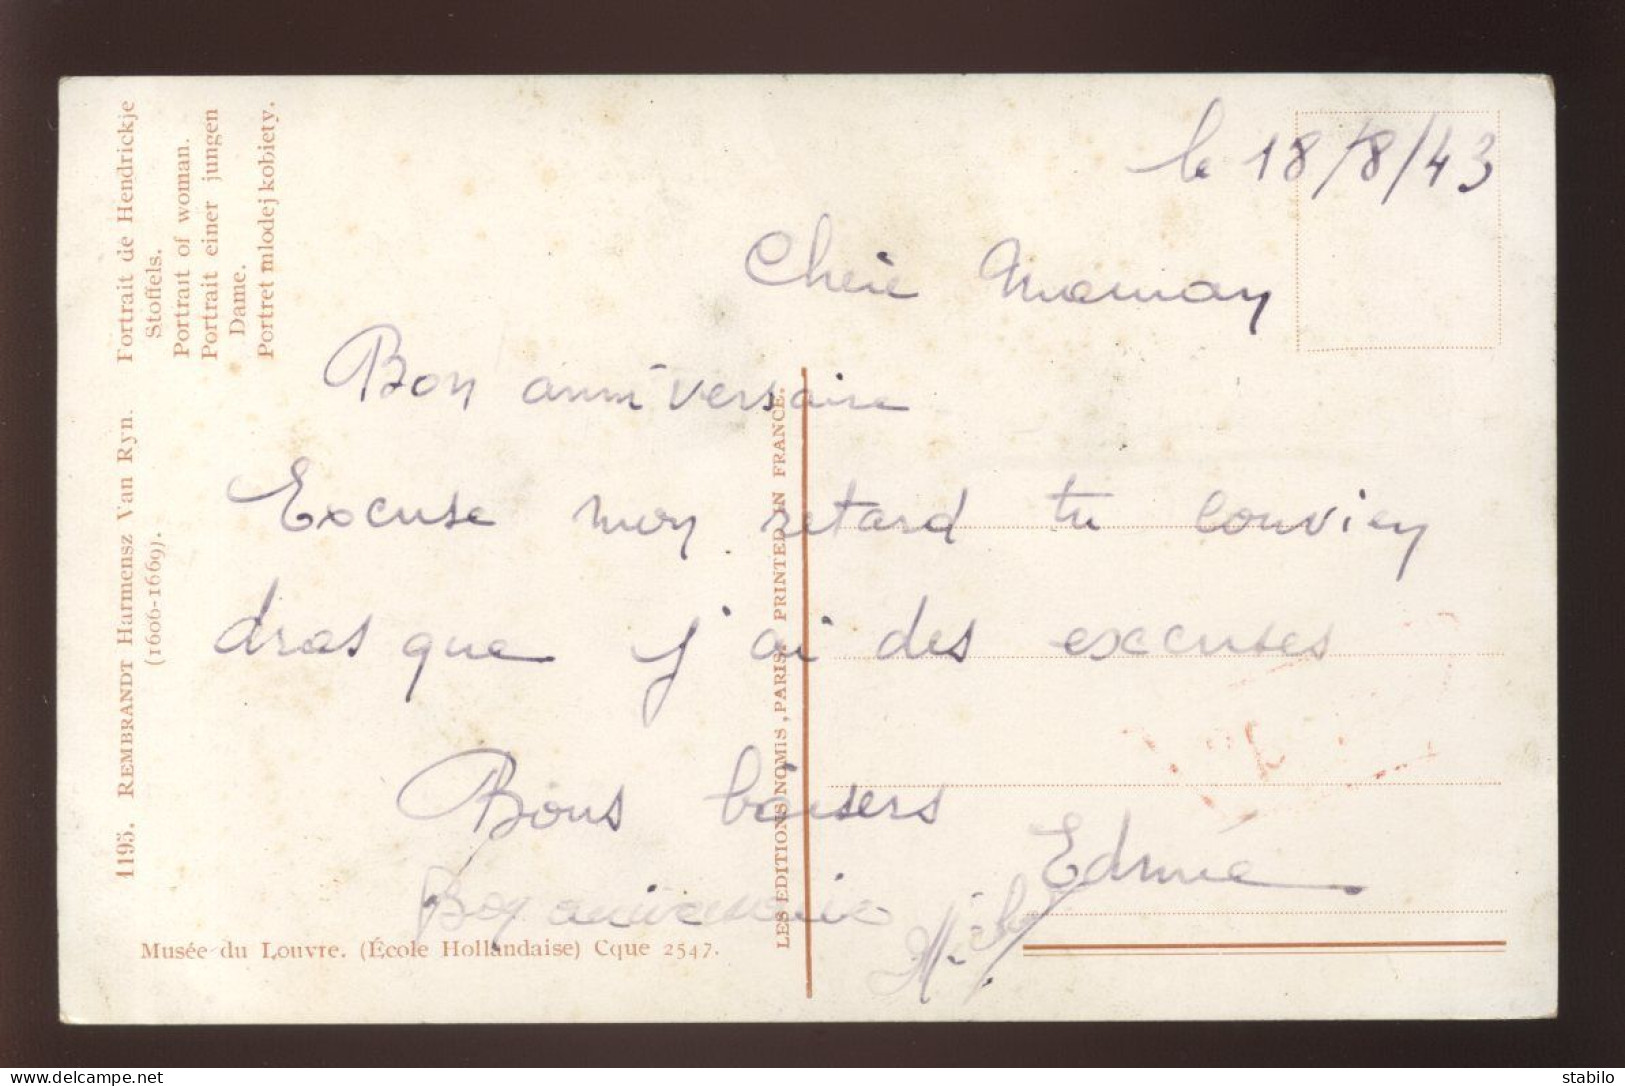 le 18/8/43
Chérie Maman
Bon anniversaire
Excuse mon retard tu convien
dras que j'ai des excuses
Bons baisers
Edmée
Bon anniversaire
1195. REMBRANDT Harmensz Van Ryn.
(1606-1669).
Portrait de Hendrickje
Stoffels.
Portrait of woman.
Portrait einer jungen
Dame.
Portret mlodej kobiety.
LES EDITIONS NOMIS, PARIS. PRINTED IN FRANCE.
Musée du Louvre. (École Hollandaise) Cque 2547.
delcampe.net
stabilo